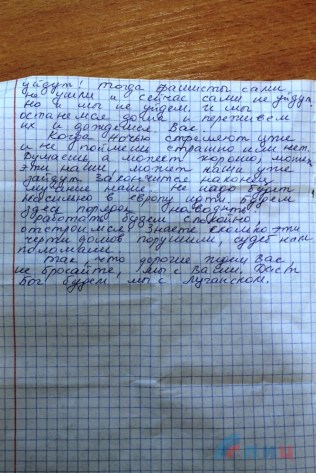 уйдут! Тогда фашисты сами
не ушли и сейчас сами не уйдут.
Но и мы не уйдем. И мы
останемся дома и переживем
их и дождемся Вас.
Когда ночью стреляют уже
и не поймешь страшно или нет.
Думаешь, а может хорошо, может
эти наши, может наши уже
зайдут. Закончится наконец
мучание наше. Не надо будет
в европу идти будем
здесь порядок наводить!
Работать будем спокойно,
отстроимся. Знаете сколько эти
черти домов порушили, судеб нам
поломали.
Так, что дорогие мои Вас
не бросайте, мы с Вами. Даст
Бог будем мы с Луганском.